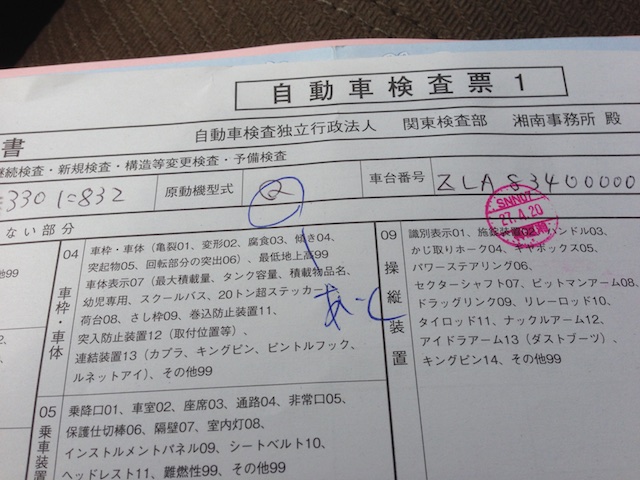 自動車検査票1
書
自動車検査独立行政法人 関東検査部 湘南事務所 殿
継続検査・新規検査・構造等変更検査・予備検査
330 に 832
原動機型式
車台番号
ZLA S3400000
ない部分
04 車枠・車体
車枠・車体（亀裂01、変形02、腐食03、傾き04、
突起物05、回転部分の突出06）、最低地上高99
車体表示07（最大積載量、タンク容量、積載物品名、
幼児専用、スクールバス、20トン超ステッカー）、
荷台08、さし枠09、巻込防止装置11、
突入防止装置12（取付位置等）、
連結装置13（カプラ、キングピン、ピントルフック、
ルネットアイ）、その他99
05 乗車装置
乗降口01、車室02、座席03、通路04、非常口05、
保護仕切棒06、隔壁07、室内灯08、
インストルメントパネル09、シートベルト10、
ヘッドレスト11、難燃性99、その他99
09 操縦装置
識別表示01、施錠装置02、ハンドル03、
かじ取りホーク04、ギヤボックス05、
パワーステアリング06、
セクターシャフト07、ピットマンアーム08、
ドラッグリンク09、リレーロッド10、
タイロッド11、ナックルアーム12、
アイドラアーム13（ダストブーツ）、
キングピン14、その他99
SNN07
27.4.20